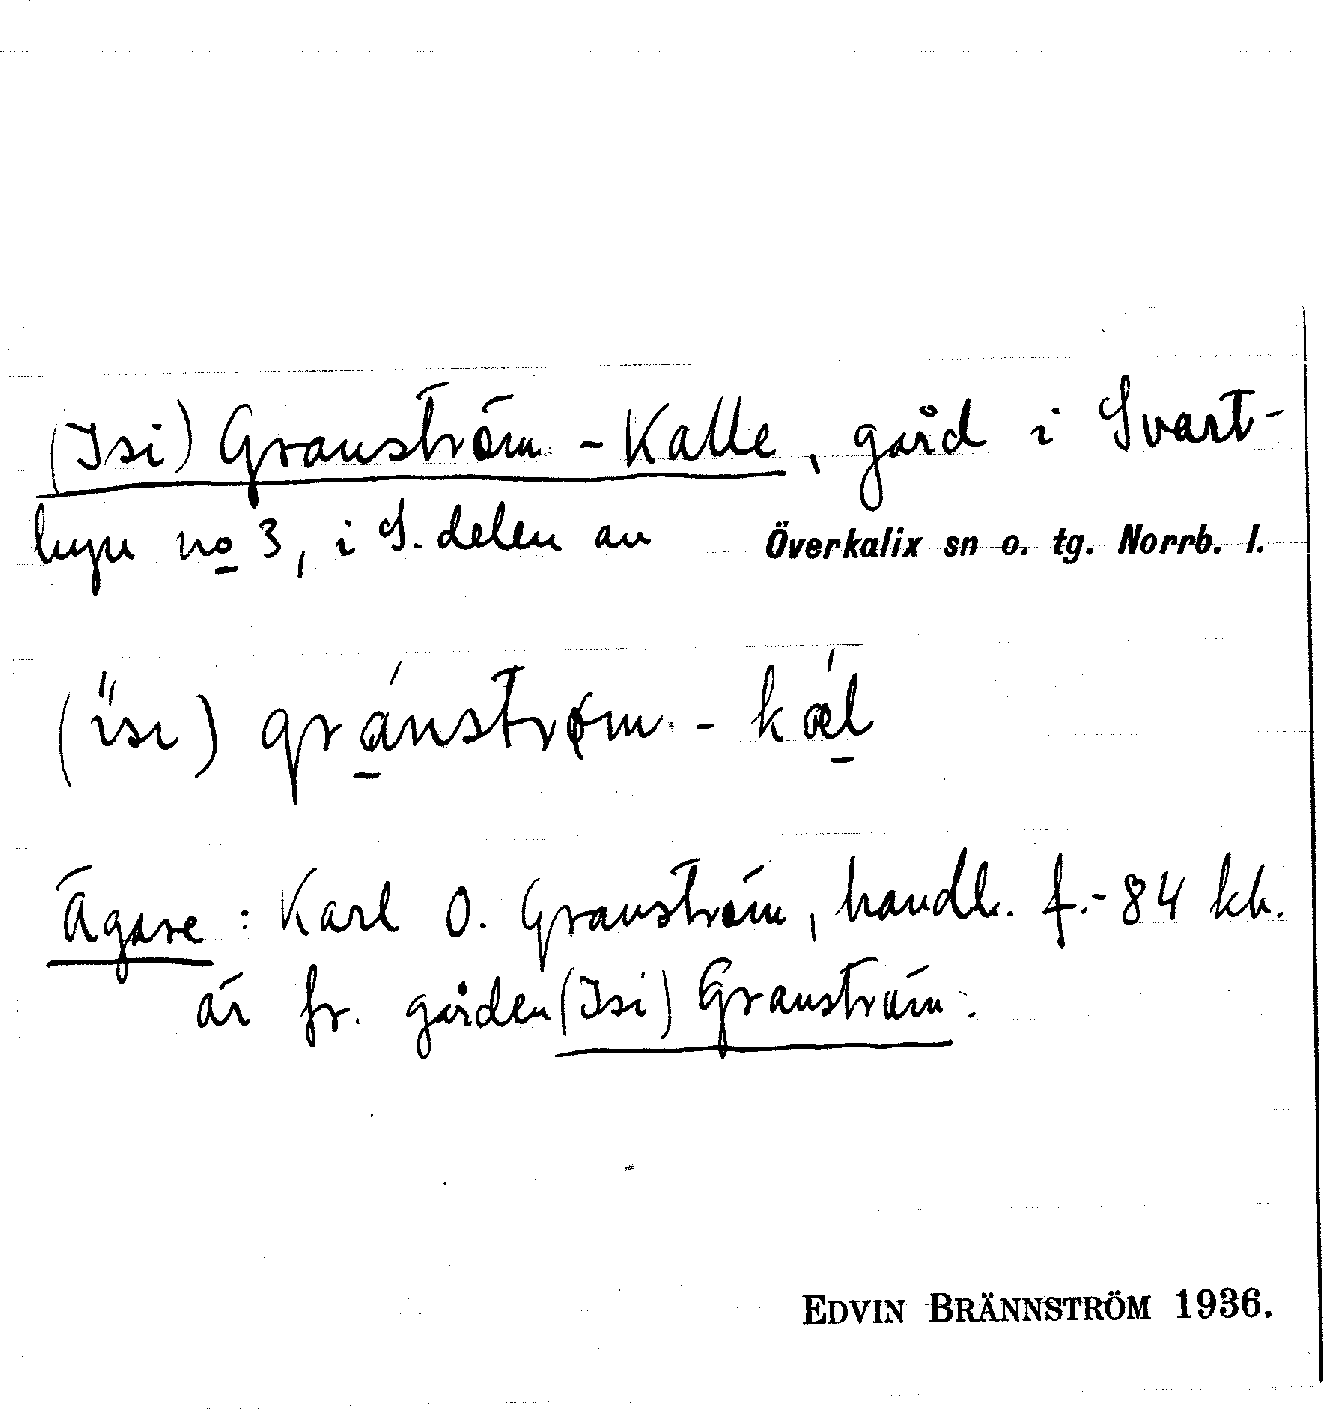 (Isi) Granström - Kalle, gård i Svart-
byn no 3, i S. delen av Överkalix sn o. tg. Norrb. l.
(i̋sɩ) gránstrøm - kǽl
Ägare: Karl O. Granström, handl. f. -84 kh.
är fr. gården (Isi) Granström.
EDVIN BRÄNNSTRÖM 1936.